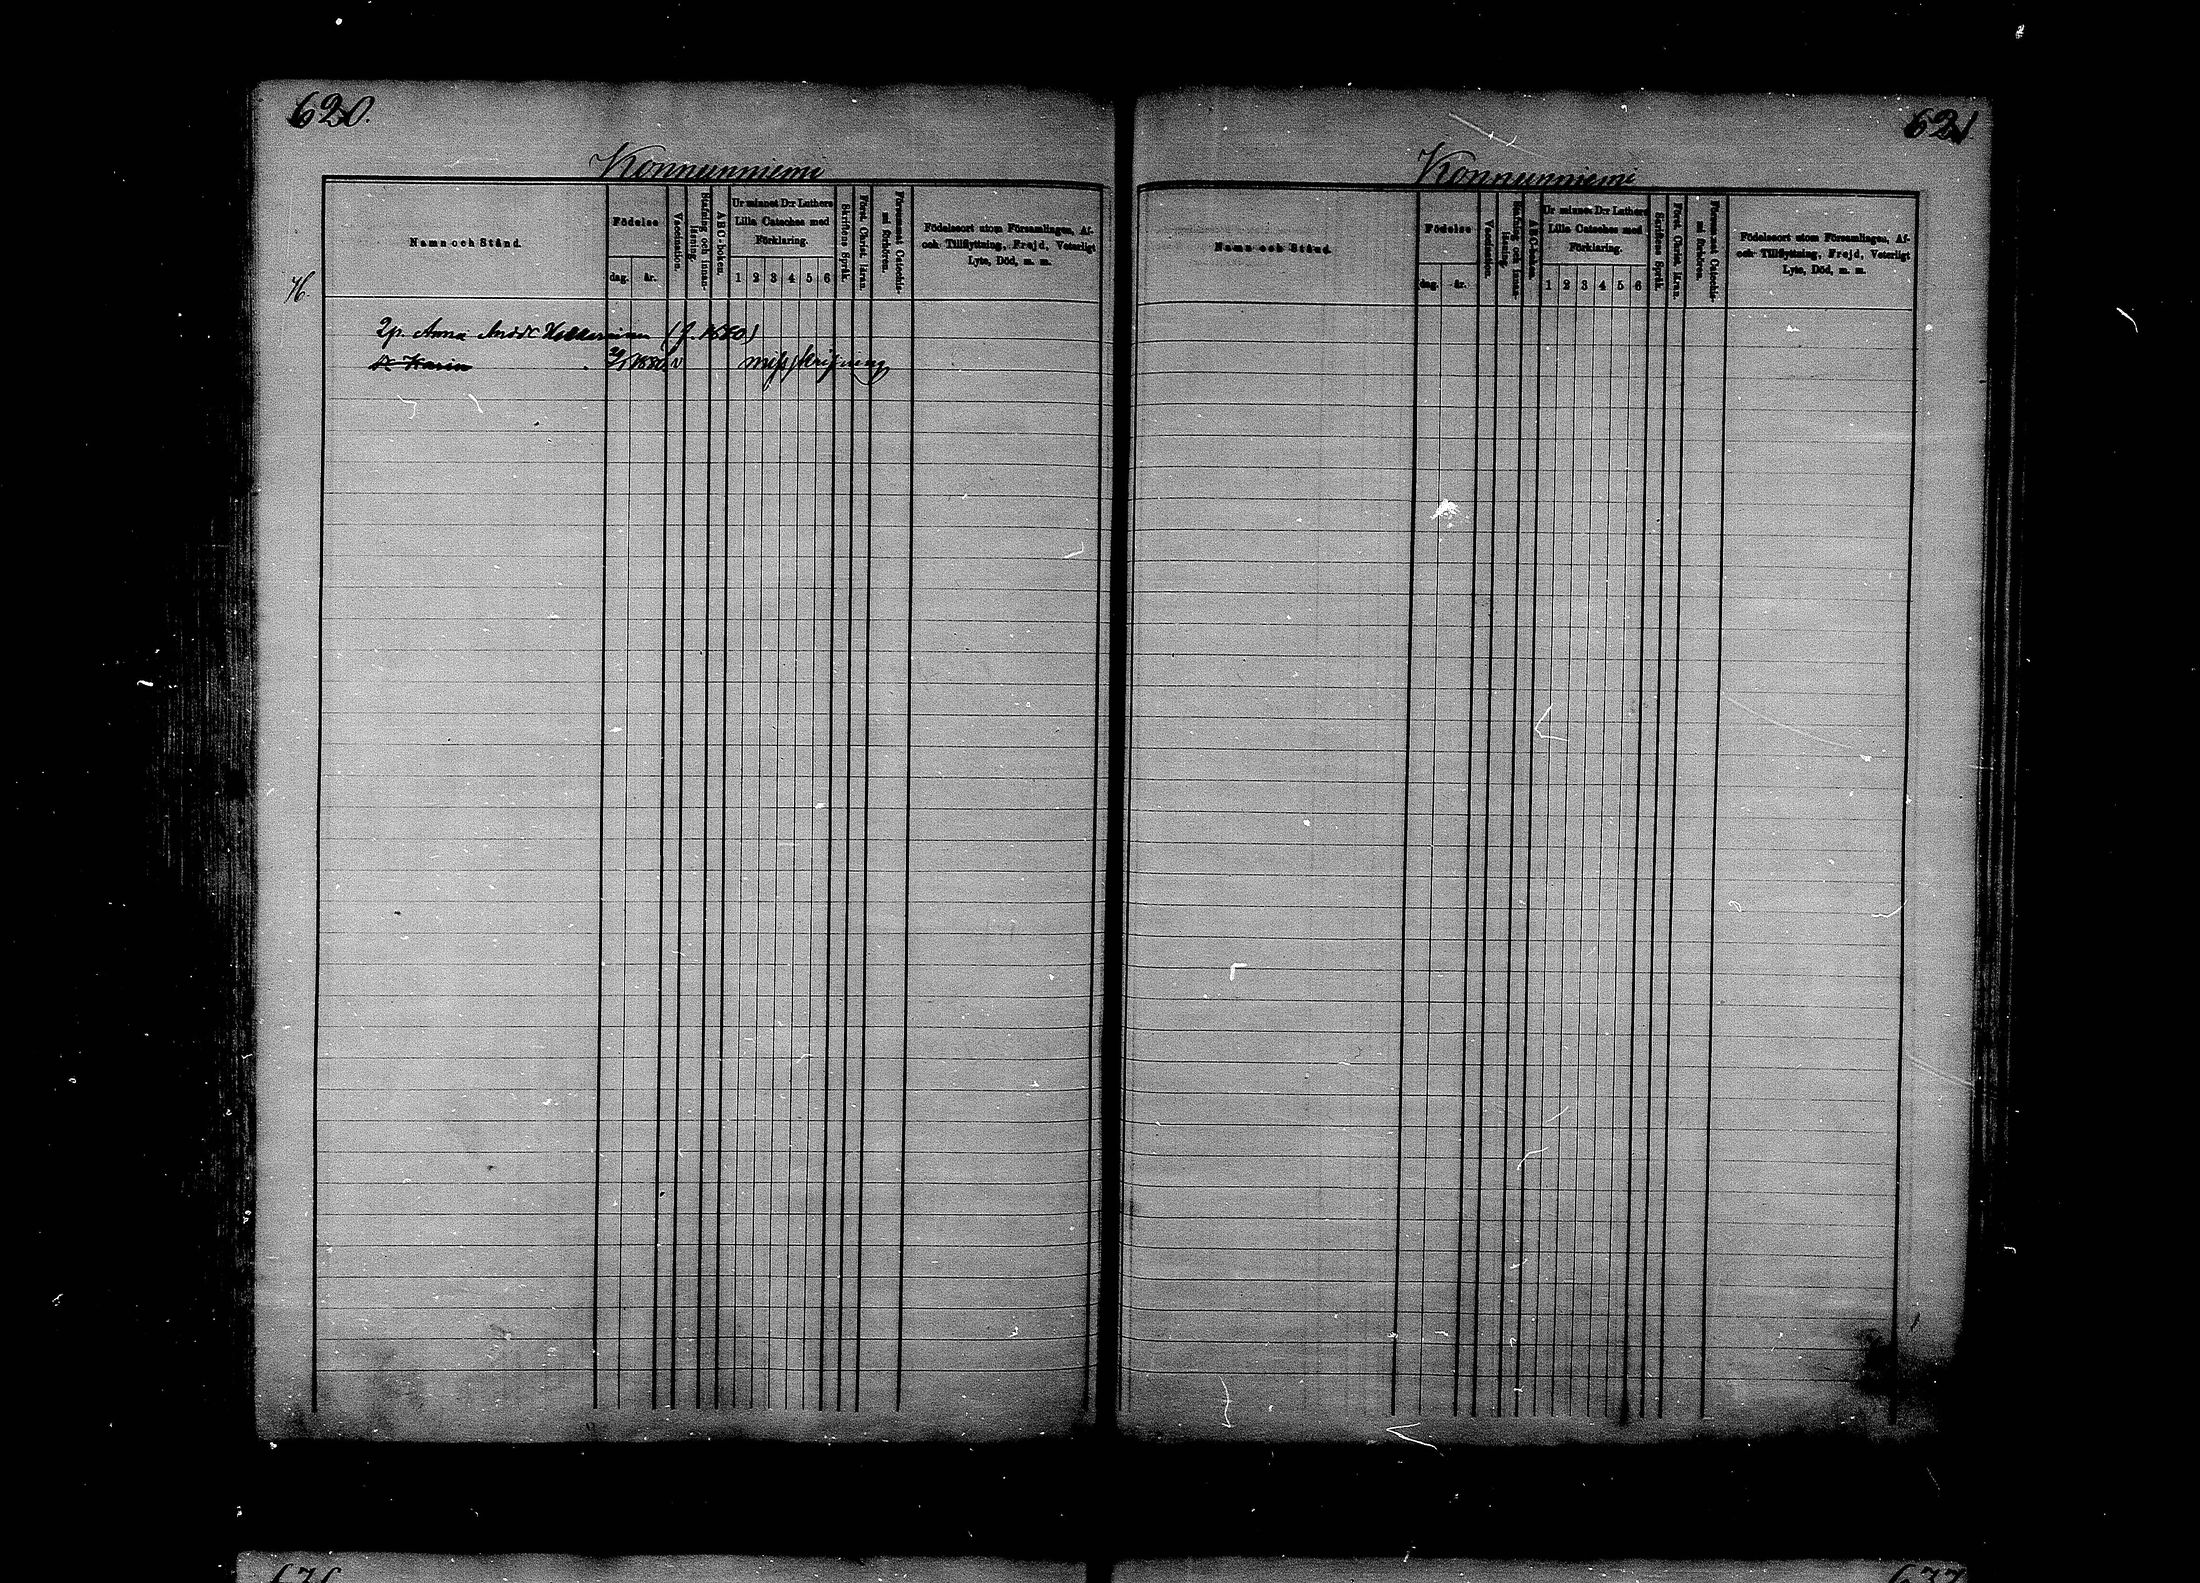 620.
Konnunniemi
Namn och Stånd.
Födelse
dag. år.
Vaccination.
Stafning och innan-
läsning.
ABC-boken.
Ur minnet D:r Luthers
Lilla Cateches med
Förklaring.
1 2 3 4 5 6
Skriftens Språk.
Först. Christ. läran.
Försummat Catechis-
mi förhören.
Födelseort utom Församlingen, Af-
och Tillflyttning, Frejd, Veterligt
Lyte, Död, m. m.
Anna (f. 1880)
Karin 1880 v missskrifning
621
Konnunniemi
Namn och Stånd.
Födelse
dag. år.
Vaccination.
Stafning och innan-
läsning.
ABC-boken.
Ur minnet D:r Luthers
Lilla Cateches med
Förklaring.
1 2 3 4 5 6
Skriftens Språk.
Först. Christ. läran.
Försummat Catechis-
mi förhören.
Födelseort utom Församlingen, Af-
och Tillflyttning, Frejd, Veterligt
Lyte, Död, m. m.